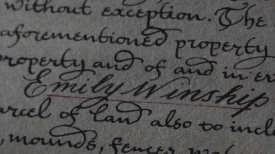 without exception. The
aforementioned property
property and of and in
Emily Winship
arcel of land also to incl
, mounds, fences